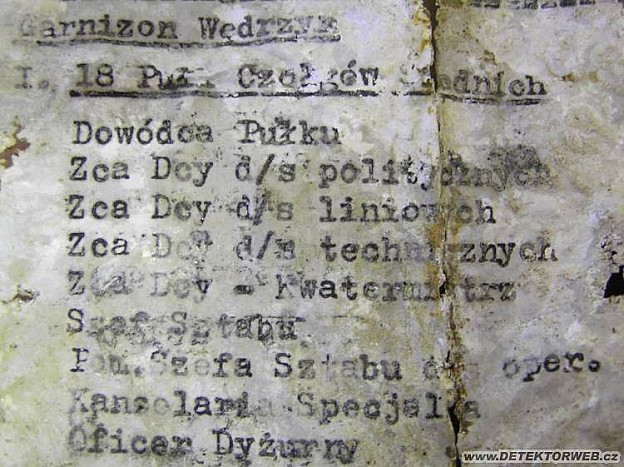 Garnizon Wędrzyn
I. 18 Pułk Czołgów Średnich
Dowódca Pułku
Zca Dcy d/s politycznych
Zca Dcy d/s liniowych
Zca Dcy d/s technicznych
Zca Dcy - Kwatermistrz
Szef Sztabu
Pom.Szefa Sztabu d/s oper.
Kancelaria Specjalna
Oficer Dyżurny
www.DETEKTORWEB.cz